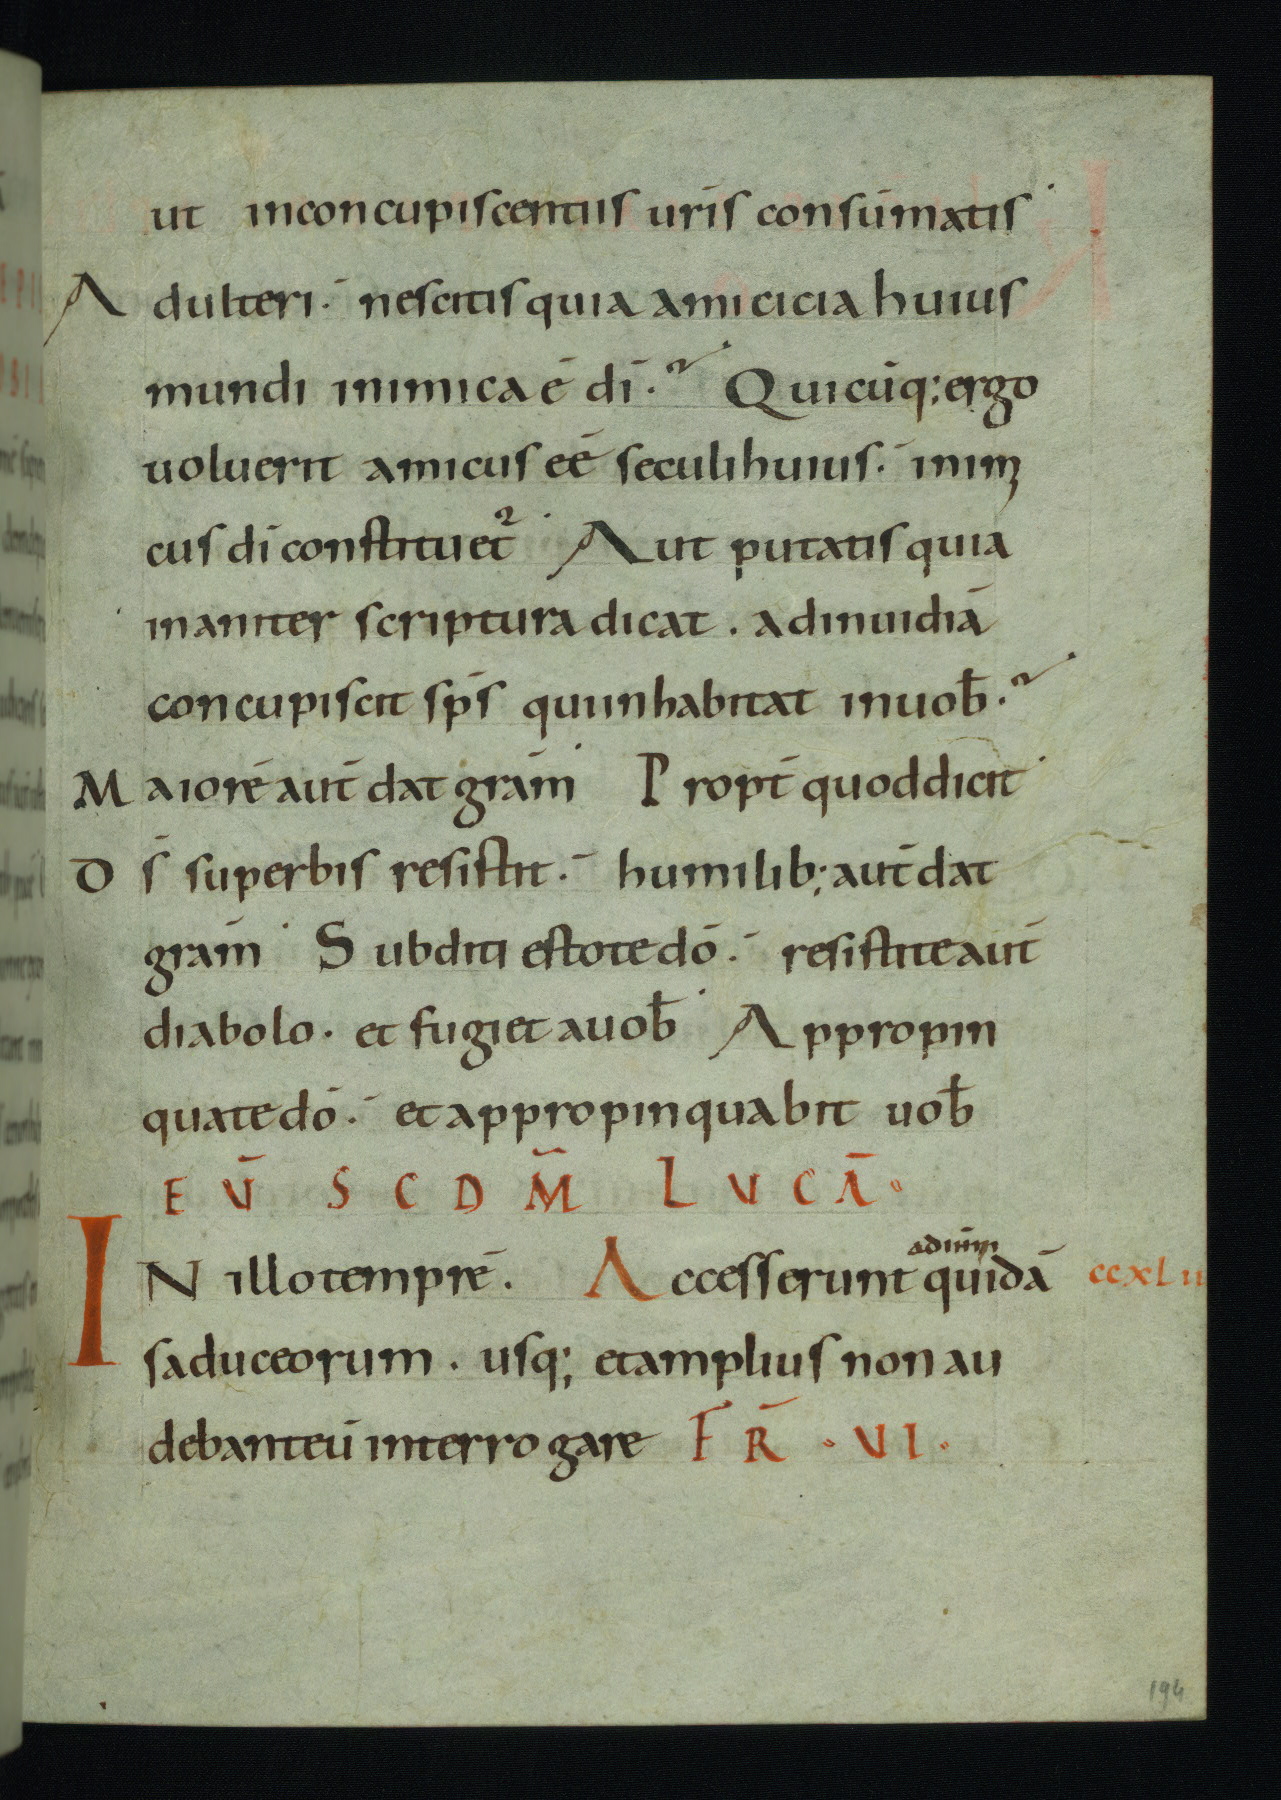 ut inconcupiscentiis ur̄is consūmatis
Adulteri. nescitis quia amicicia huius
mundi inimica ē dī. Quicūq; ergo
uoluerit amicus eē seculi huius. inimi
cus dī constituet᷑ Aut putatis quia
inaniter scriptura dicat. adinuidiā
concupiscit sp̄s quiinhabitat inuob̄.
Maiorē aut̄ dat grām̄ Propt̄ quoddicit
Ds̄ superbis resistit. humilib; aut̄dat
grām̄ Subditi estotedō. resistiteaut̄
diabolo. et fugiet auob̄ Appropin
quatedō. etappropinquabit uob̄
EŪ SCDM̄ LUCĀ.
adiīm
IN illotemprē. Accesserunt quidā ccxlu
saduceorum. usq; etamplius nonau
debanteū interrogare FR̄. VI.
194